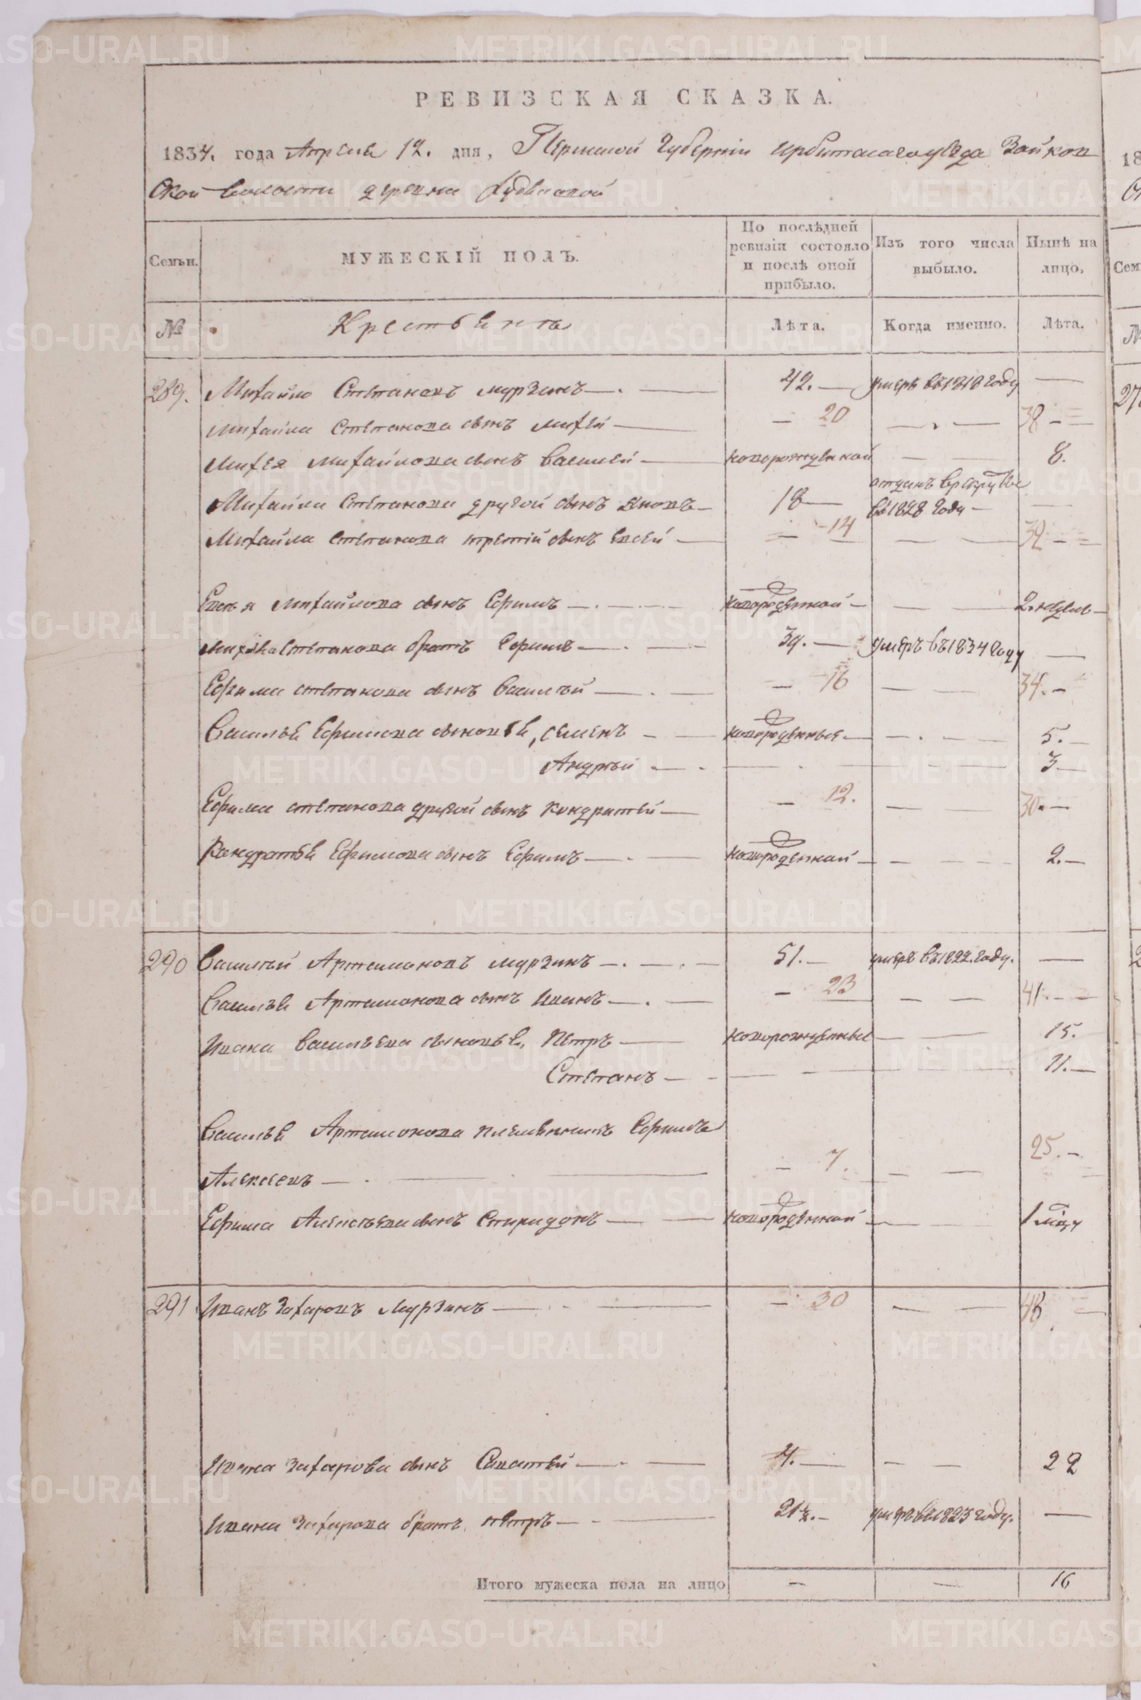 РЕВИЗСКАЯ СКАЗКА.
1834. года Апреля 12. дня, Пермской Губернии Ирбитскаго уѣзда Зайков
ской волости деревни
Семьи.
МУЖЕСКІЙ ПОЛЪ.
По послѣдней ревизіи состояло и послѣ оной прибыло.
Изъ того числа выбыло.
Нынѣ на лицо.
№
Крестьянъ
Лѣта.
Когда именно.
Лѣта.
289. Михайло Степановъ Мурзинъ — 42. — умеръ въ 1818 году —
Михайла Степанова сынъ Михей — 20 — 38 —
Михея Михайлова сынъ Василей — новорожденной — 8.
Михайла Степанова другой сынъ — 18 — отданъ в рекруты
въ 1828 году —
Михайла Степанова третій сынъ Евсей — 14 — 32 —
Евсея Михайлова сынъ Ефимъ — новорожденной — 2. недели
Михайла Степанова братъ Ефимъ — 39. — умеръ въ 1834 году —
Ефима Степанова сынъ Василей — 16 — 34. —
Василья Ефимова сыновья, Семенъ — новорожденные — 5. —
Андрей — 3 —
Ефима Степанова другой сынъ Кондратей — 12. — 30. —
Кандратья Ефимова сынъ Ефимъ — новорожденной — 2. —
290 Василей Артамоновъ Мурзинъ — 51. — умеръ въ 1822. году. —
Василья Артамонова сынъ Иванъ — 23 — 41. —
Ивана Васильева сыновья, Петръ — новорожденные — 15.
Степанъ — 11. —
Василья Артамонова племянникъ Ефимъ
Алексеевъ — 7. — 25. —
Ефима Алексѣева сынъ Спиридонъ — новорожденной — 1 мѣсяцъ
291 Иванъ Захаровъ Мурзинъ — 30 — 48
Ивана Захарова сынъ Савватей — 4. — 22
Ивана Захарова братъ Петръ — 21½. — умеръ въ 1823 году. —
Итого мужеска пола на лицо — — 16
METRIKI.GASO-URAL.RU